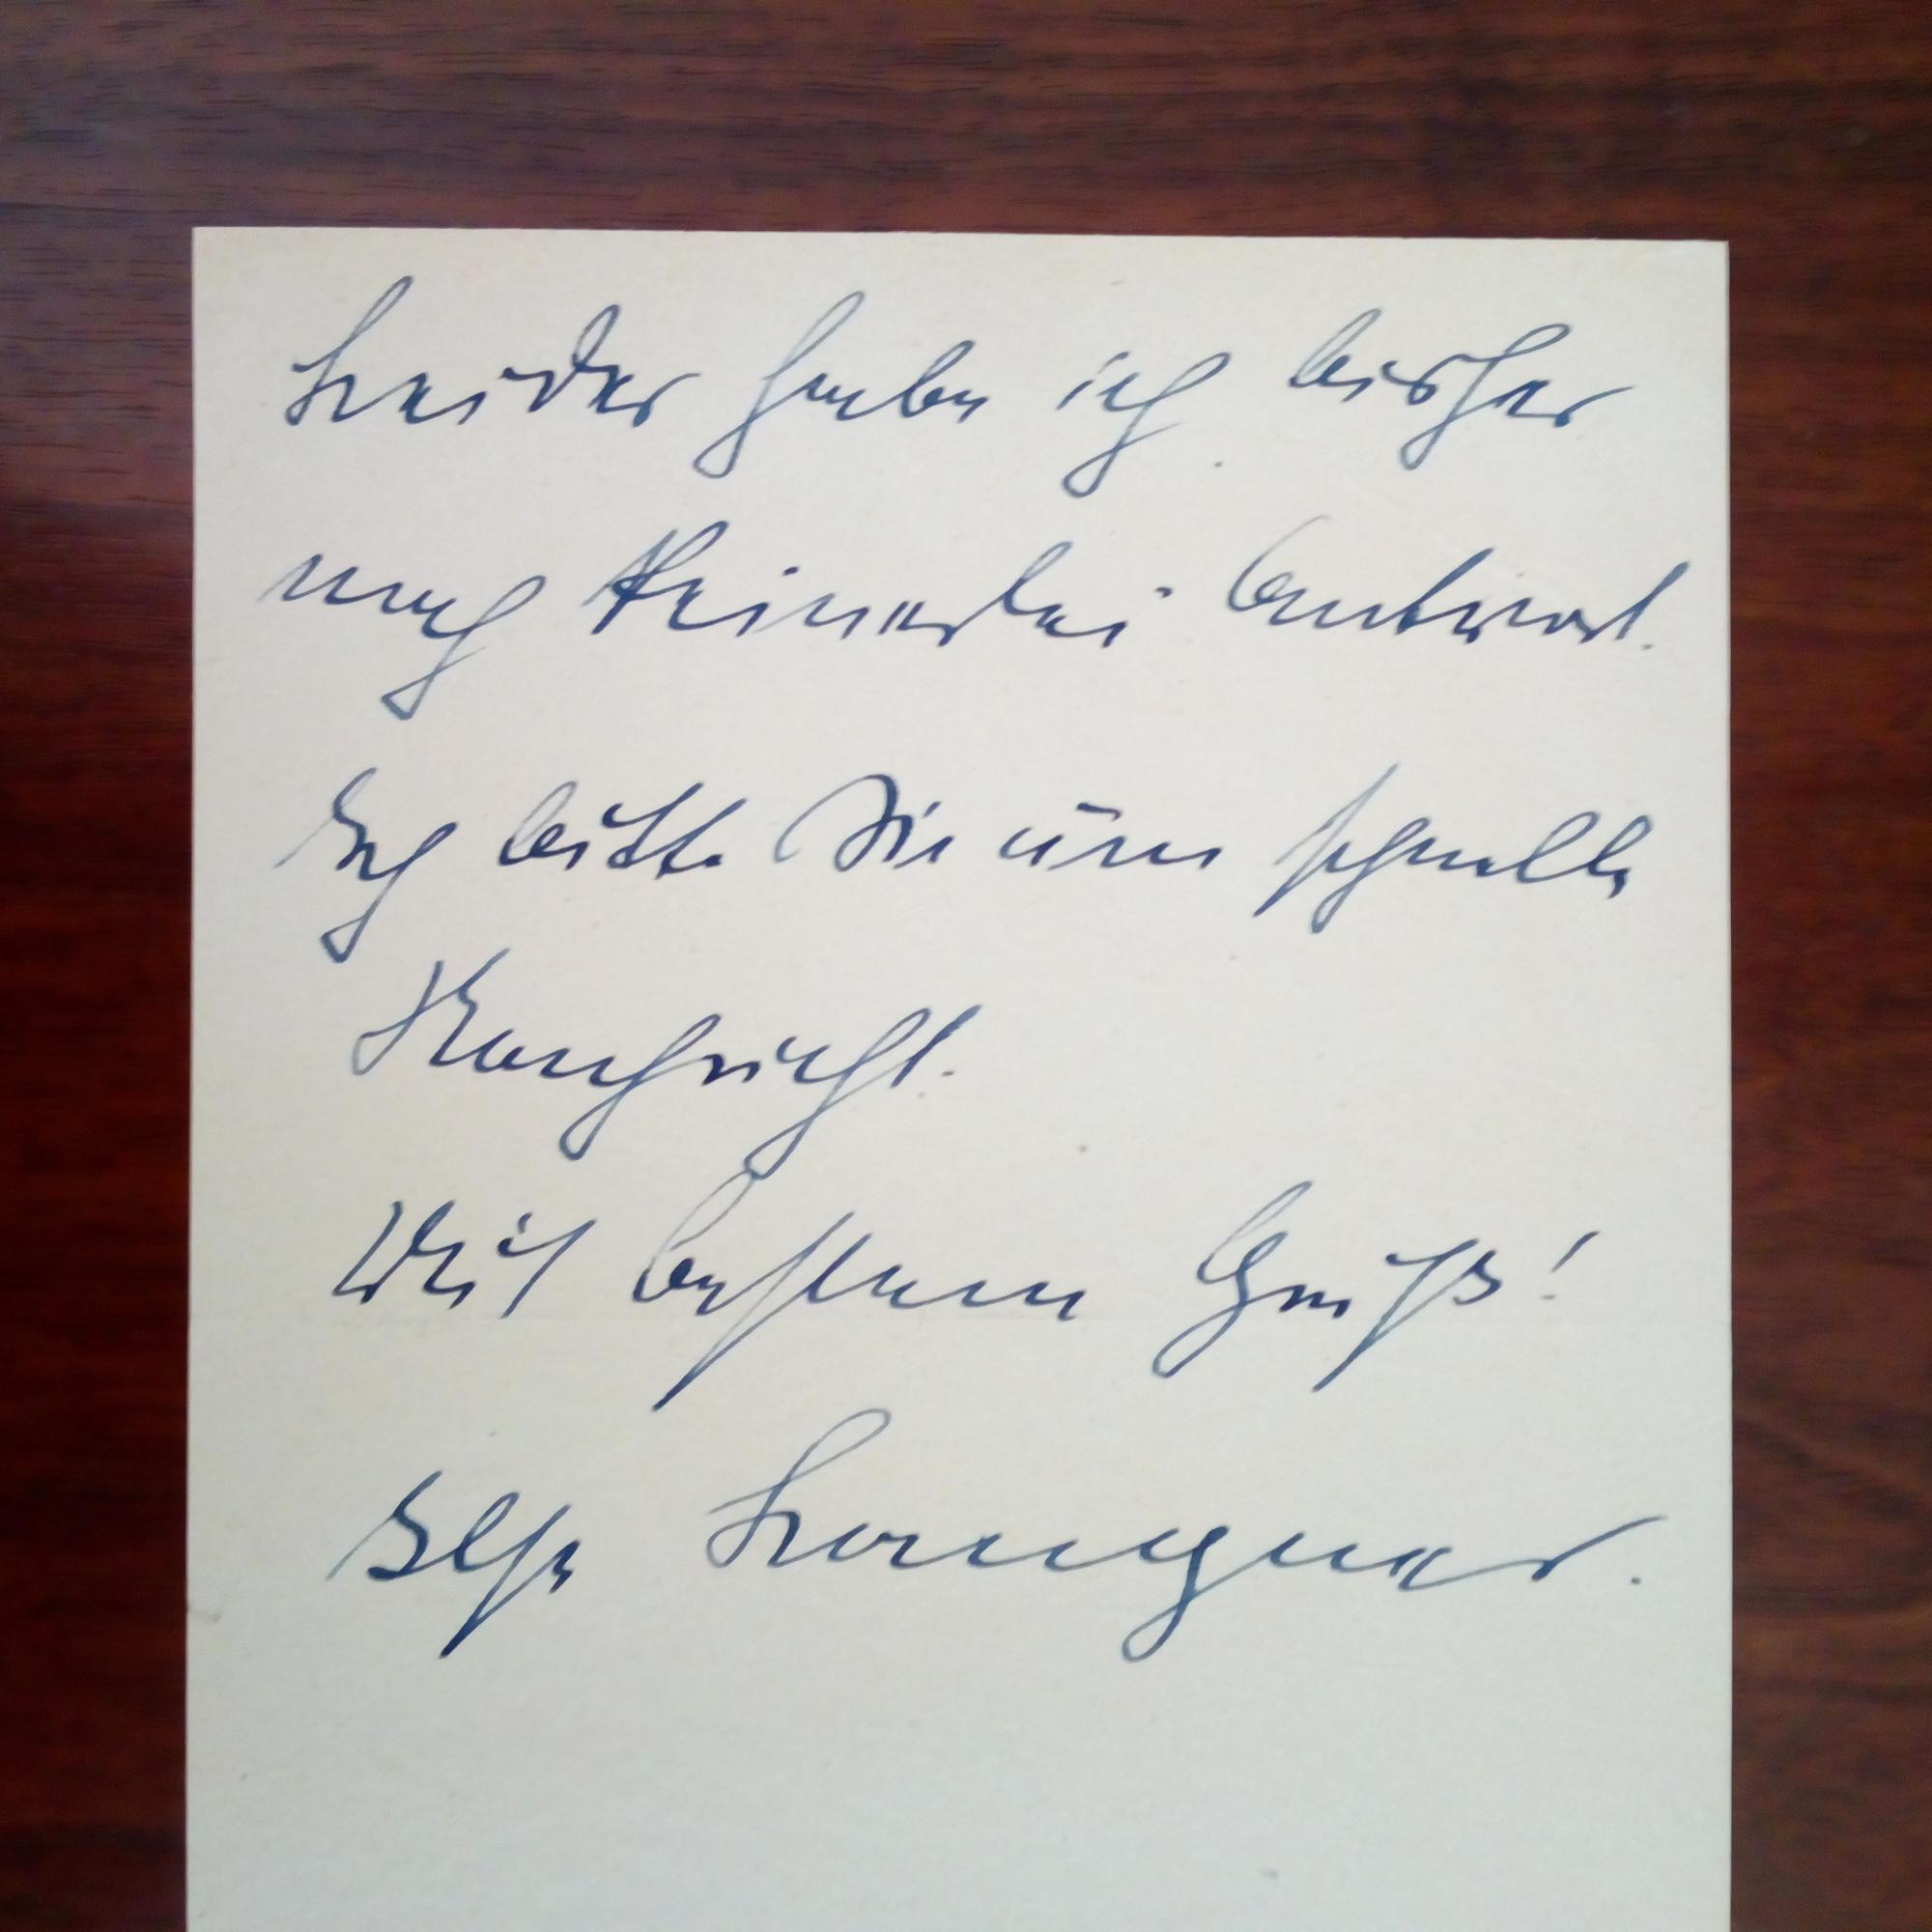 Leider habe ich bisher
noch keinerlei Antwort.
Ich bitte Sie um schnelle
Nachricht.
Mit bestem Gruß!
Ilse Langner.